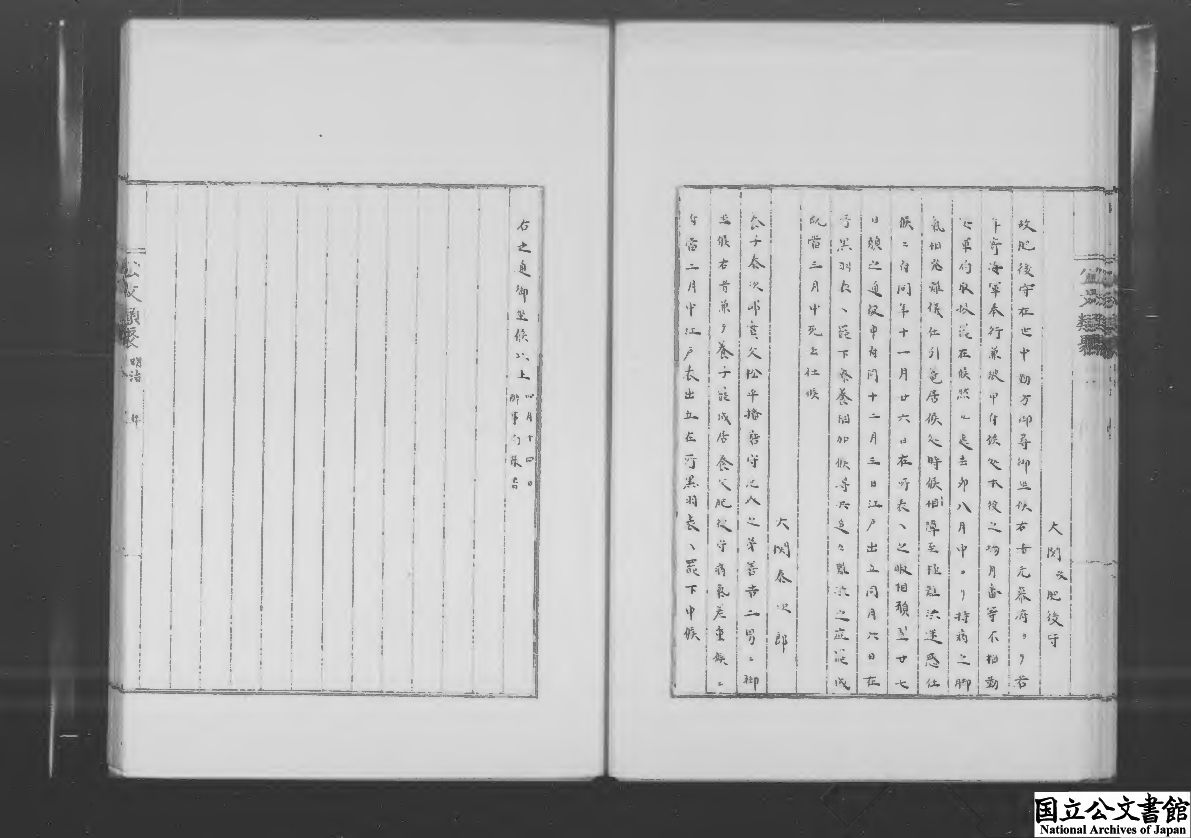 大関故肥後守
故肥後守在世中勤方御尋御坐候右者元幕府ゟ若
年寄海軍奉行兼被申付候処本役之場月番等不相勤
海軍而取扱罷在候然ル処去卯八月中ゟ持病之脚
気相発難儀仕引籠居候処時候相障至極難渋迷惑仕
候ニ付同年十一月廿六日在所表ヘ之暇相願翌廿七
日願之通被申付同十二月三日江戸出立同月六日在
所黒羽表ヘ罷下療養相加候得共追々難渋之症罷成
既当二月中死去仕候
大関泰次郎
養子泰次郎実父松平播磨守之八之弟善吉二男ニ御
坐候右者兼ゟ養子罷成居養父肥後守病気差重候ニ
付当二月中江戸表出立在所黒羽表ヘ罷下申候
右之通御坐候以上 四月十四日
公文類聚 明治
国立公文書館
National Archives of Japan